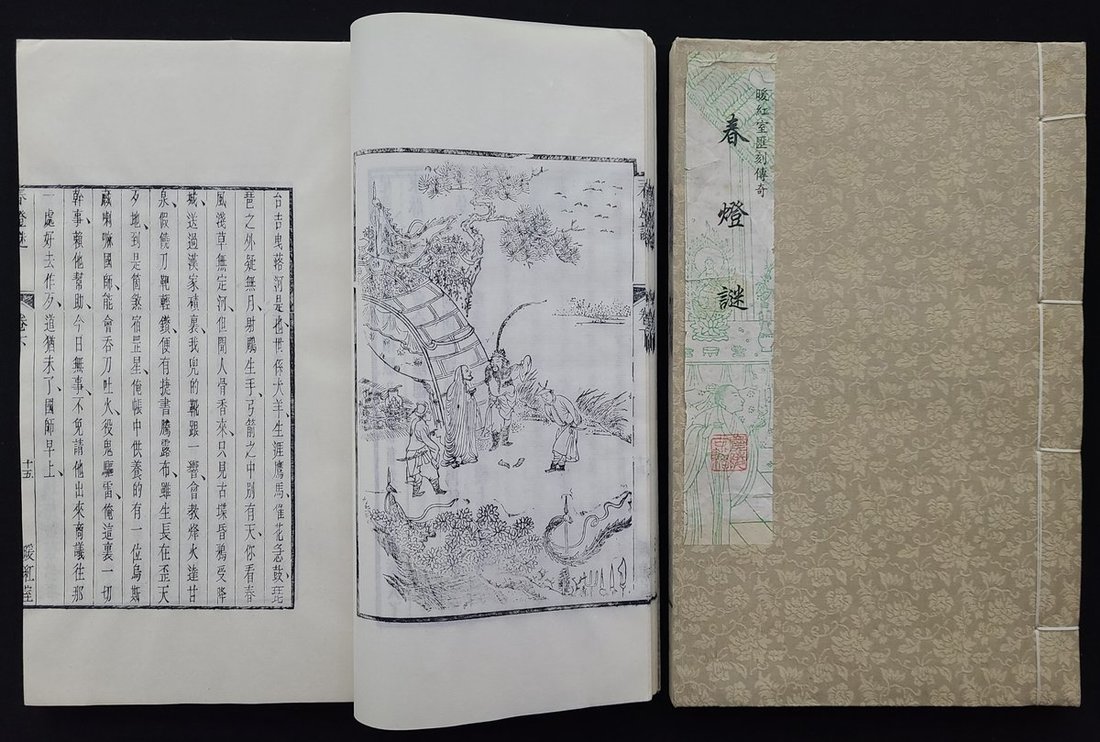 台吉曳落河是也、世係犬羊、生涯鷹馬、催花急鼓、琵
琶之外疑無月、射鵰生手、弓箭之中別有天、你看春
風淺草無定河、但聞人骨香來、只見古堞昏鴉受降
城、送過漢家積裏、我兜的靴跟一響、會教烽火達甘
泉、假饒刀靶輕鑽、便有捷書騰露布、雖生長在歪天
歹地、到是箇煞宿罡星、俺帳中供養的有一位烏斯
藏喇嘛國師、能會吞刀吐火、役鬼驅雷、俺這裏一切
幹事、賴他幫助、今日無事、不免請他出來商議、往那
一處好去作歹、道猶未了、國師早上、
春燈謎
十五
暖紅室
暖紅室匯刻傳奇
春燈謎